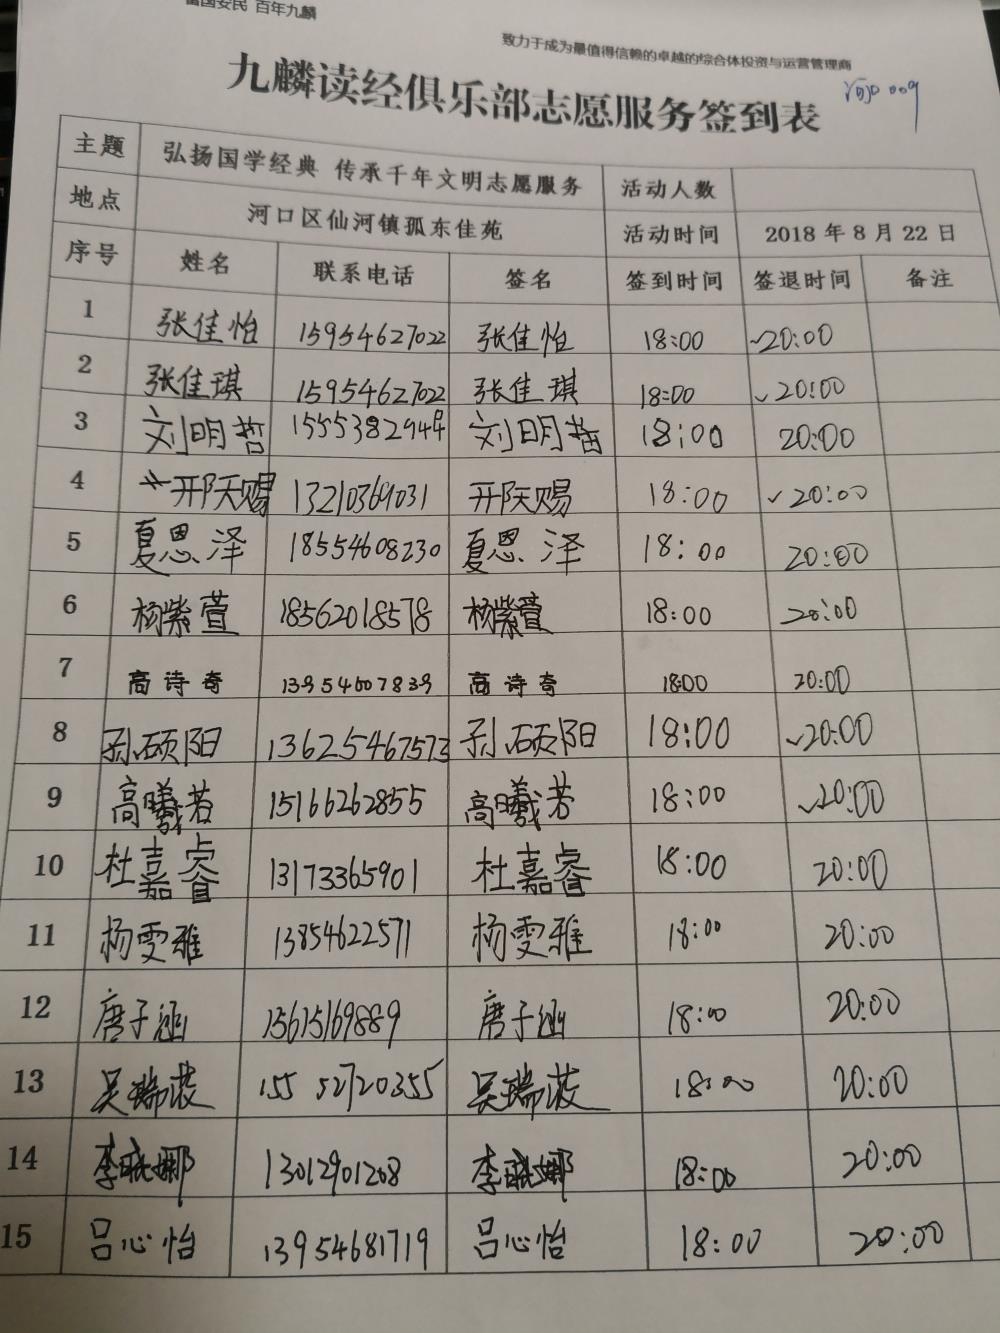 富国安民 百年九麟
致力于成为最值得信赖的卓越的综合体投资与运营管理商
九麟读经俱乐部志愿服务签到表
主题 弘扬国学经典 传承千年文明志愿服务 活动人数
地点 河口区仙河镇孤东佳苑 活动时间 2018 年 8 月 22 日
序号 姓名 联系电话 签名 签到时间 签退时间 备注
1 张佳怡 15954627022 张佳怡 18:00 ✓20:00
2 张佳琪 15954627022 张佳琪 18:00 ✓20:00
3 刘明哲 刘明哲 18:00 20:00
4 13210369031 18:00 ✓20:00
5 夏恩泽 18554608230 夏恩泽 18:00 20:00
6 杨紫萱 18562018578 杨紫萱 18:00 20:00
7 高诗奇 13954607839 高诗奇 18:00 20:00
8 孙硕阳 13625467573 孙硕阳 18:00 ✓20:00
9 高曦若 15166262855 高曦若 18:00 ✓20:00
10 杜嘉睿 13173365901 杜嘉睿 18:00 20:00
11 杨雯雅 13854622571 杨雯雅 18:00 20:00
12 唐子涵 15615169889 唐子涵 18:00 20:00
13 155 52720355 18:00 20:00
14 李晓娜 13012901208 李晓娜 18:00 20:00
15 吕心怡 13954681719 吕心怡 18:00 20:00